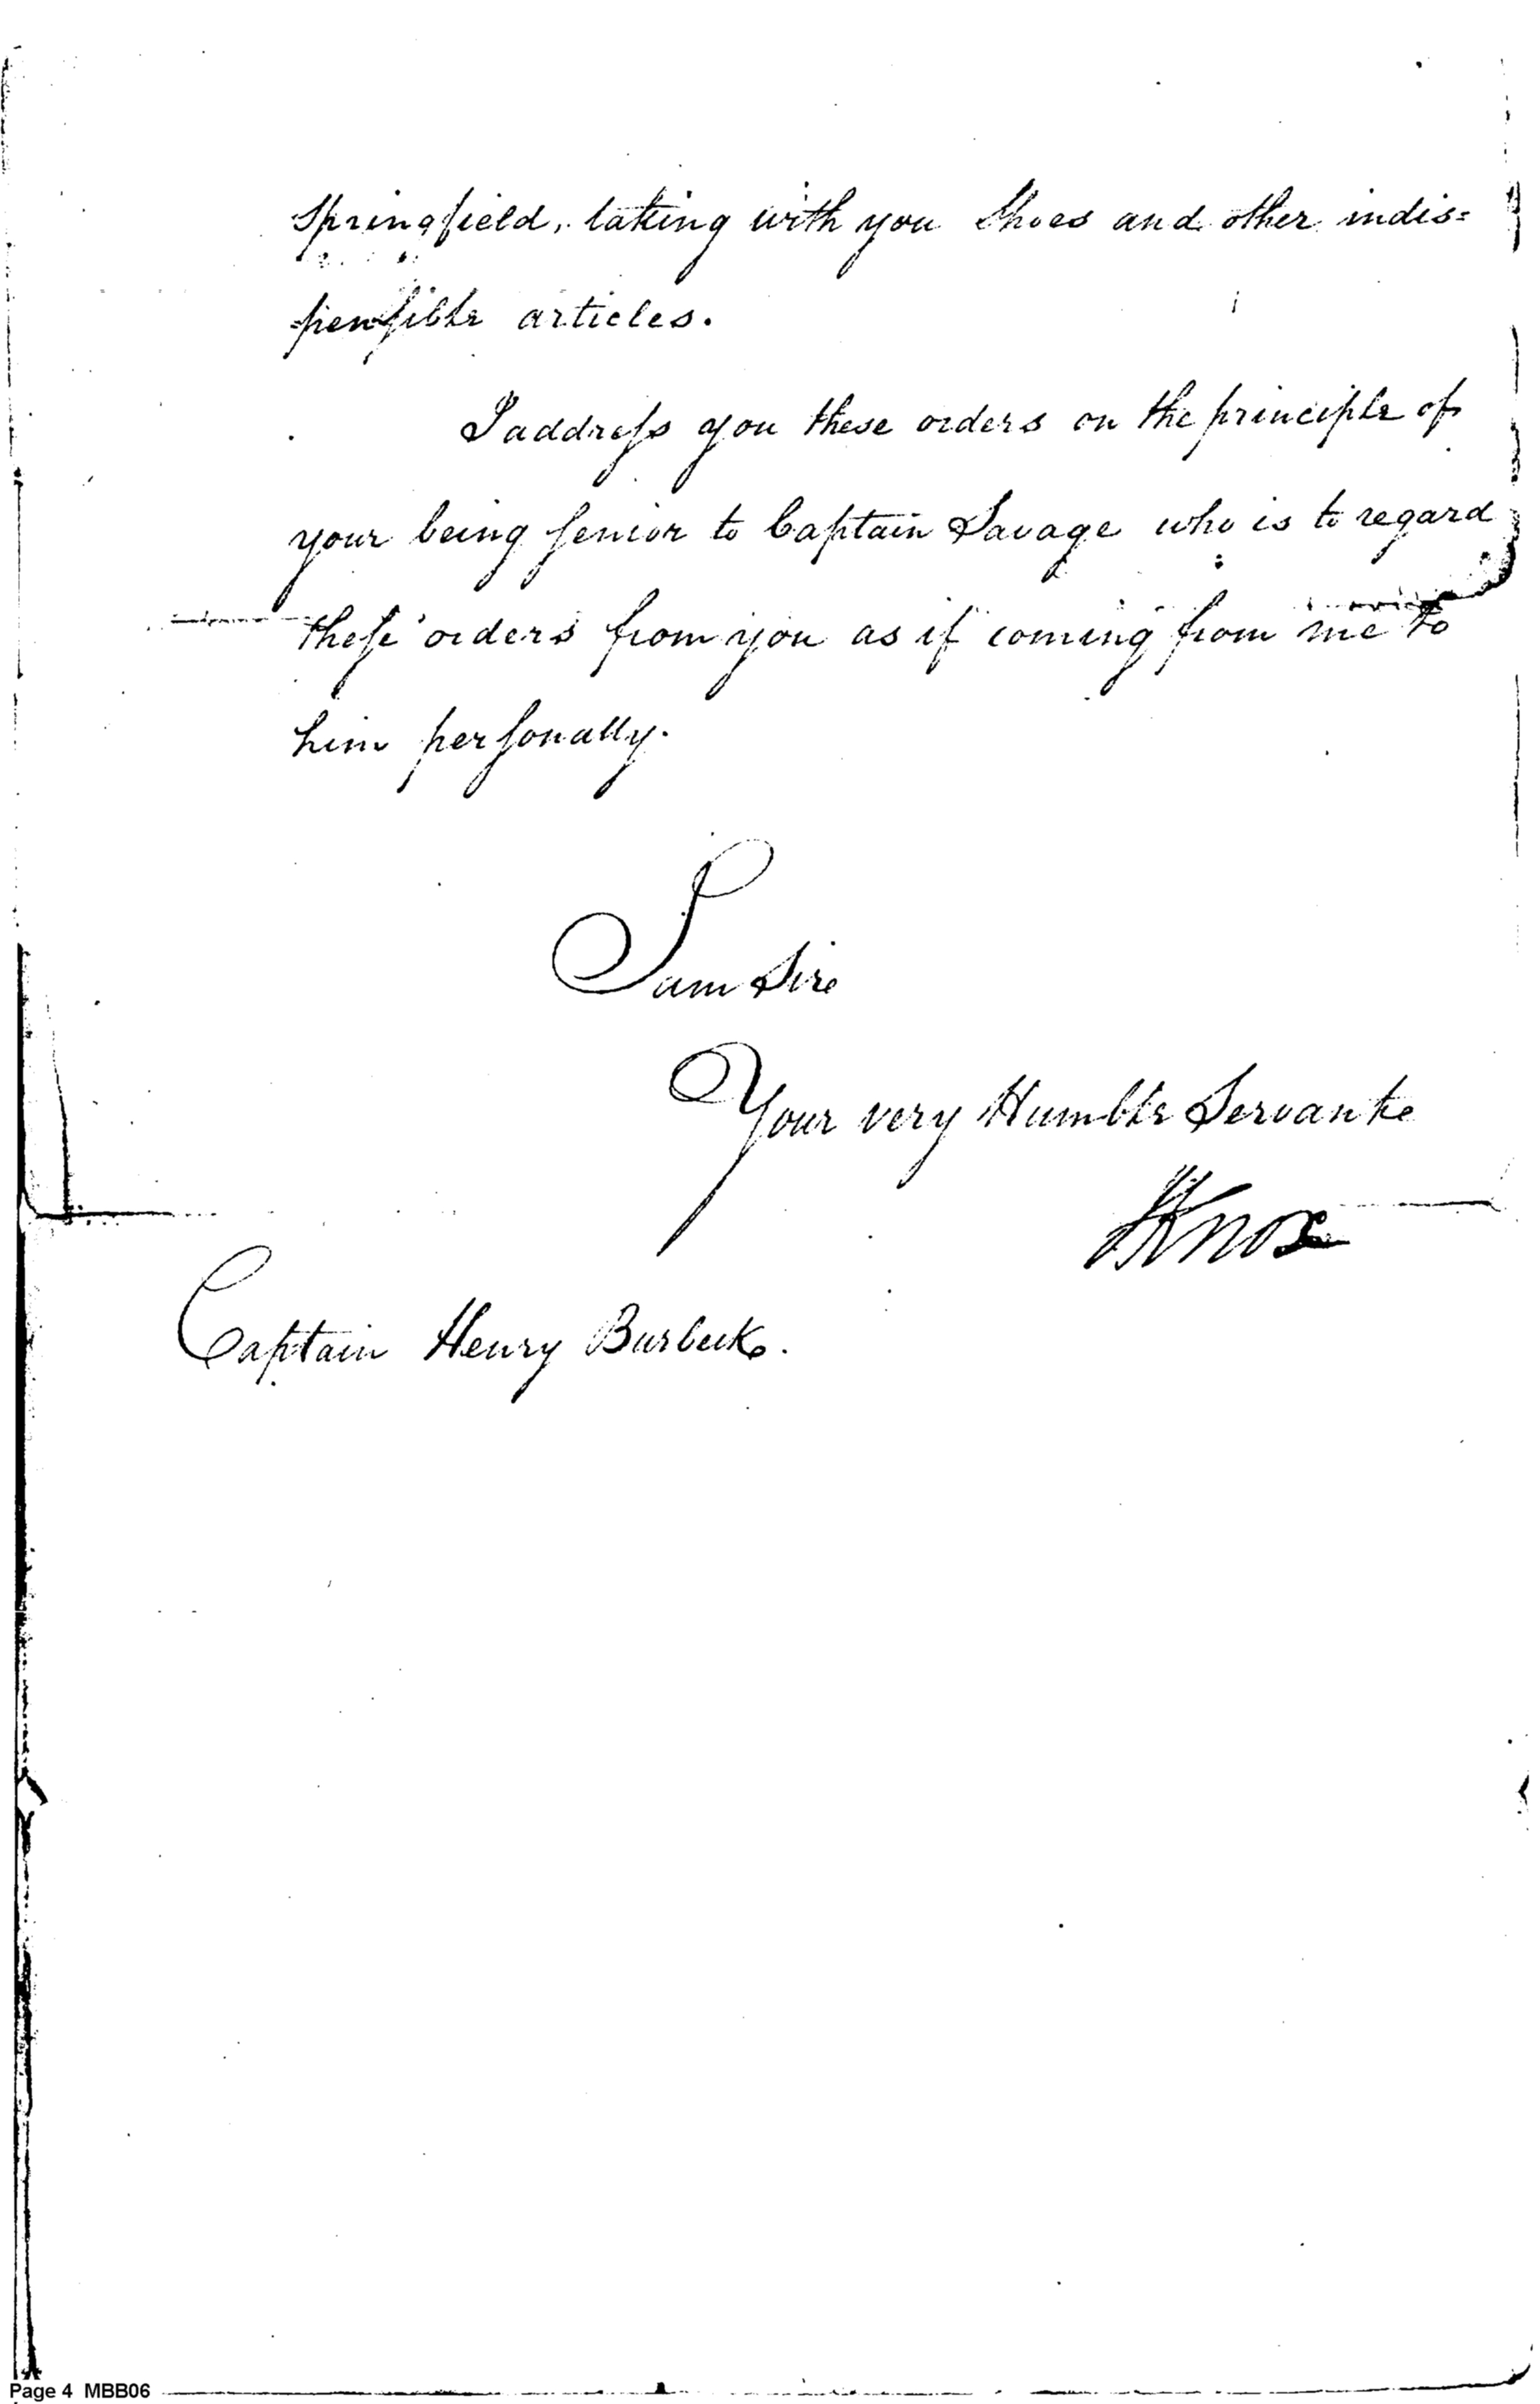 Springfield, taking with you Shoes and other indis=
=pensible articles.
I address you these orders on the principle of
your being senior to Captain Savage who is to regard
these orders from you as if coming from me to
him personally.
I am Sir
Your very Humble Servant
HKnox
Captain Henry Burbeck.
Page 4 MBB06